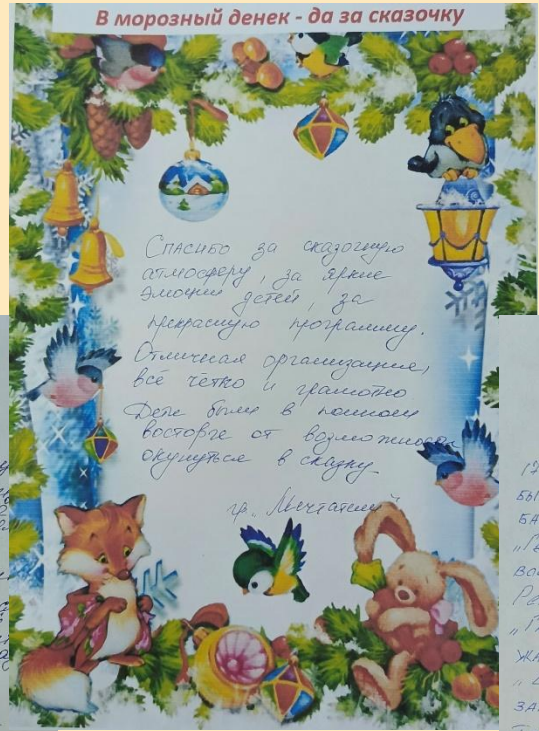 В морозный денек - да за сказочку
Спасибо за сказочную
атмосферу, за яркие
эмоции детей, за
прекрасную программу.
Отличная организация,
всё чётко и грамотно
Дети были в полном
восторге от возможности
окунуться в сказку.
гр. „Мечтатели"
17
БЫ
БА
ЖА
ЗА